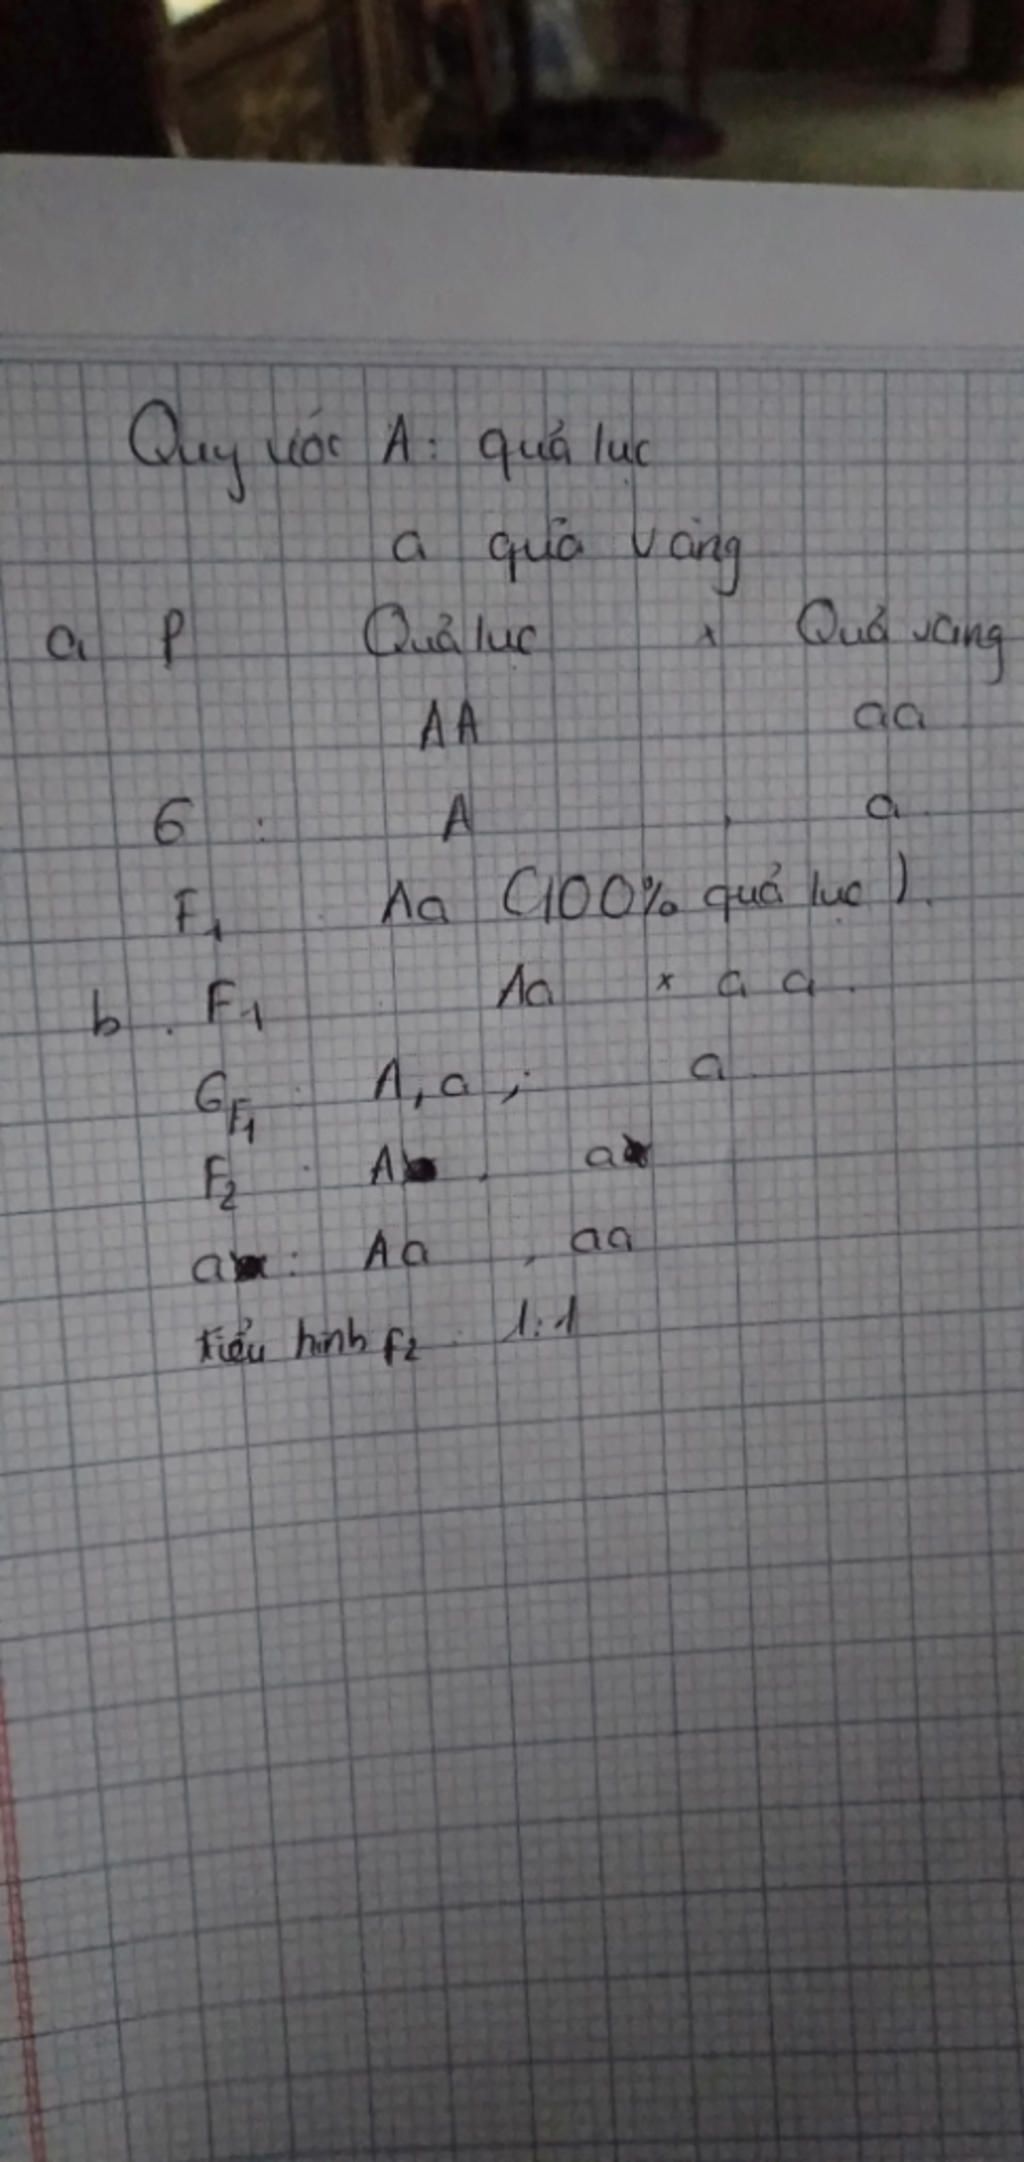 Quy ước A: quả lục
a quả vàng
a P Quả lục x Quả vàng
AA aa
G : A , a
F1 Aa (100% quả lục).
b. F1 Aa x aa.
GF1 A, a ; a
F2 A a
a : Aa , aa
kiểu hình F2 1:1